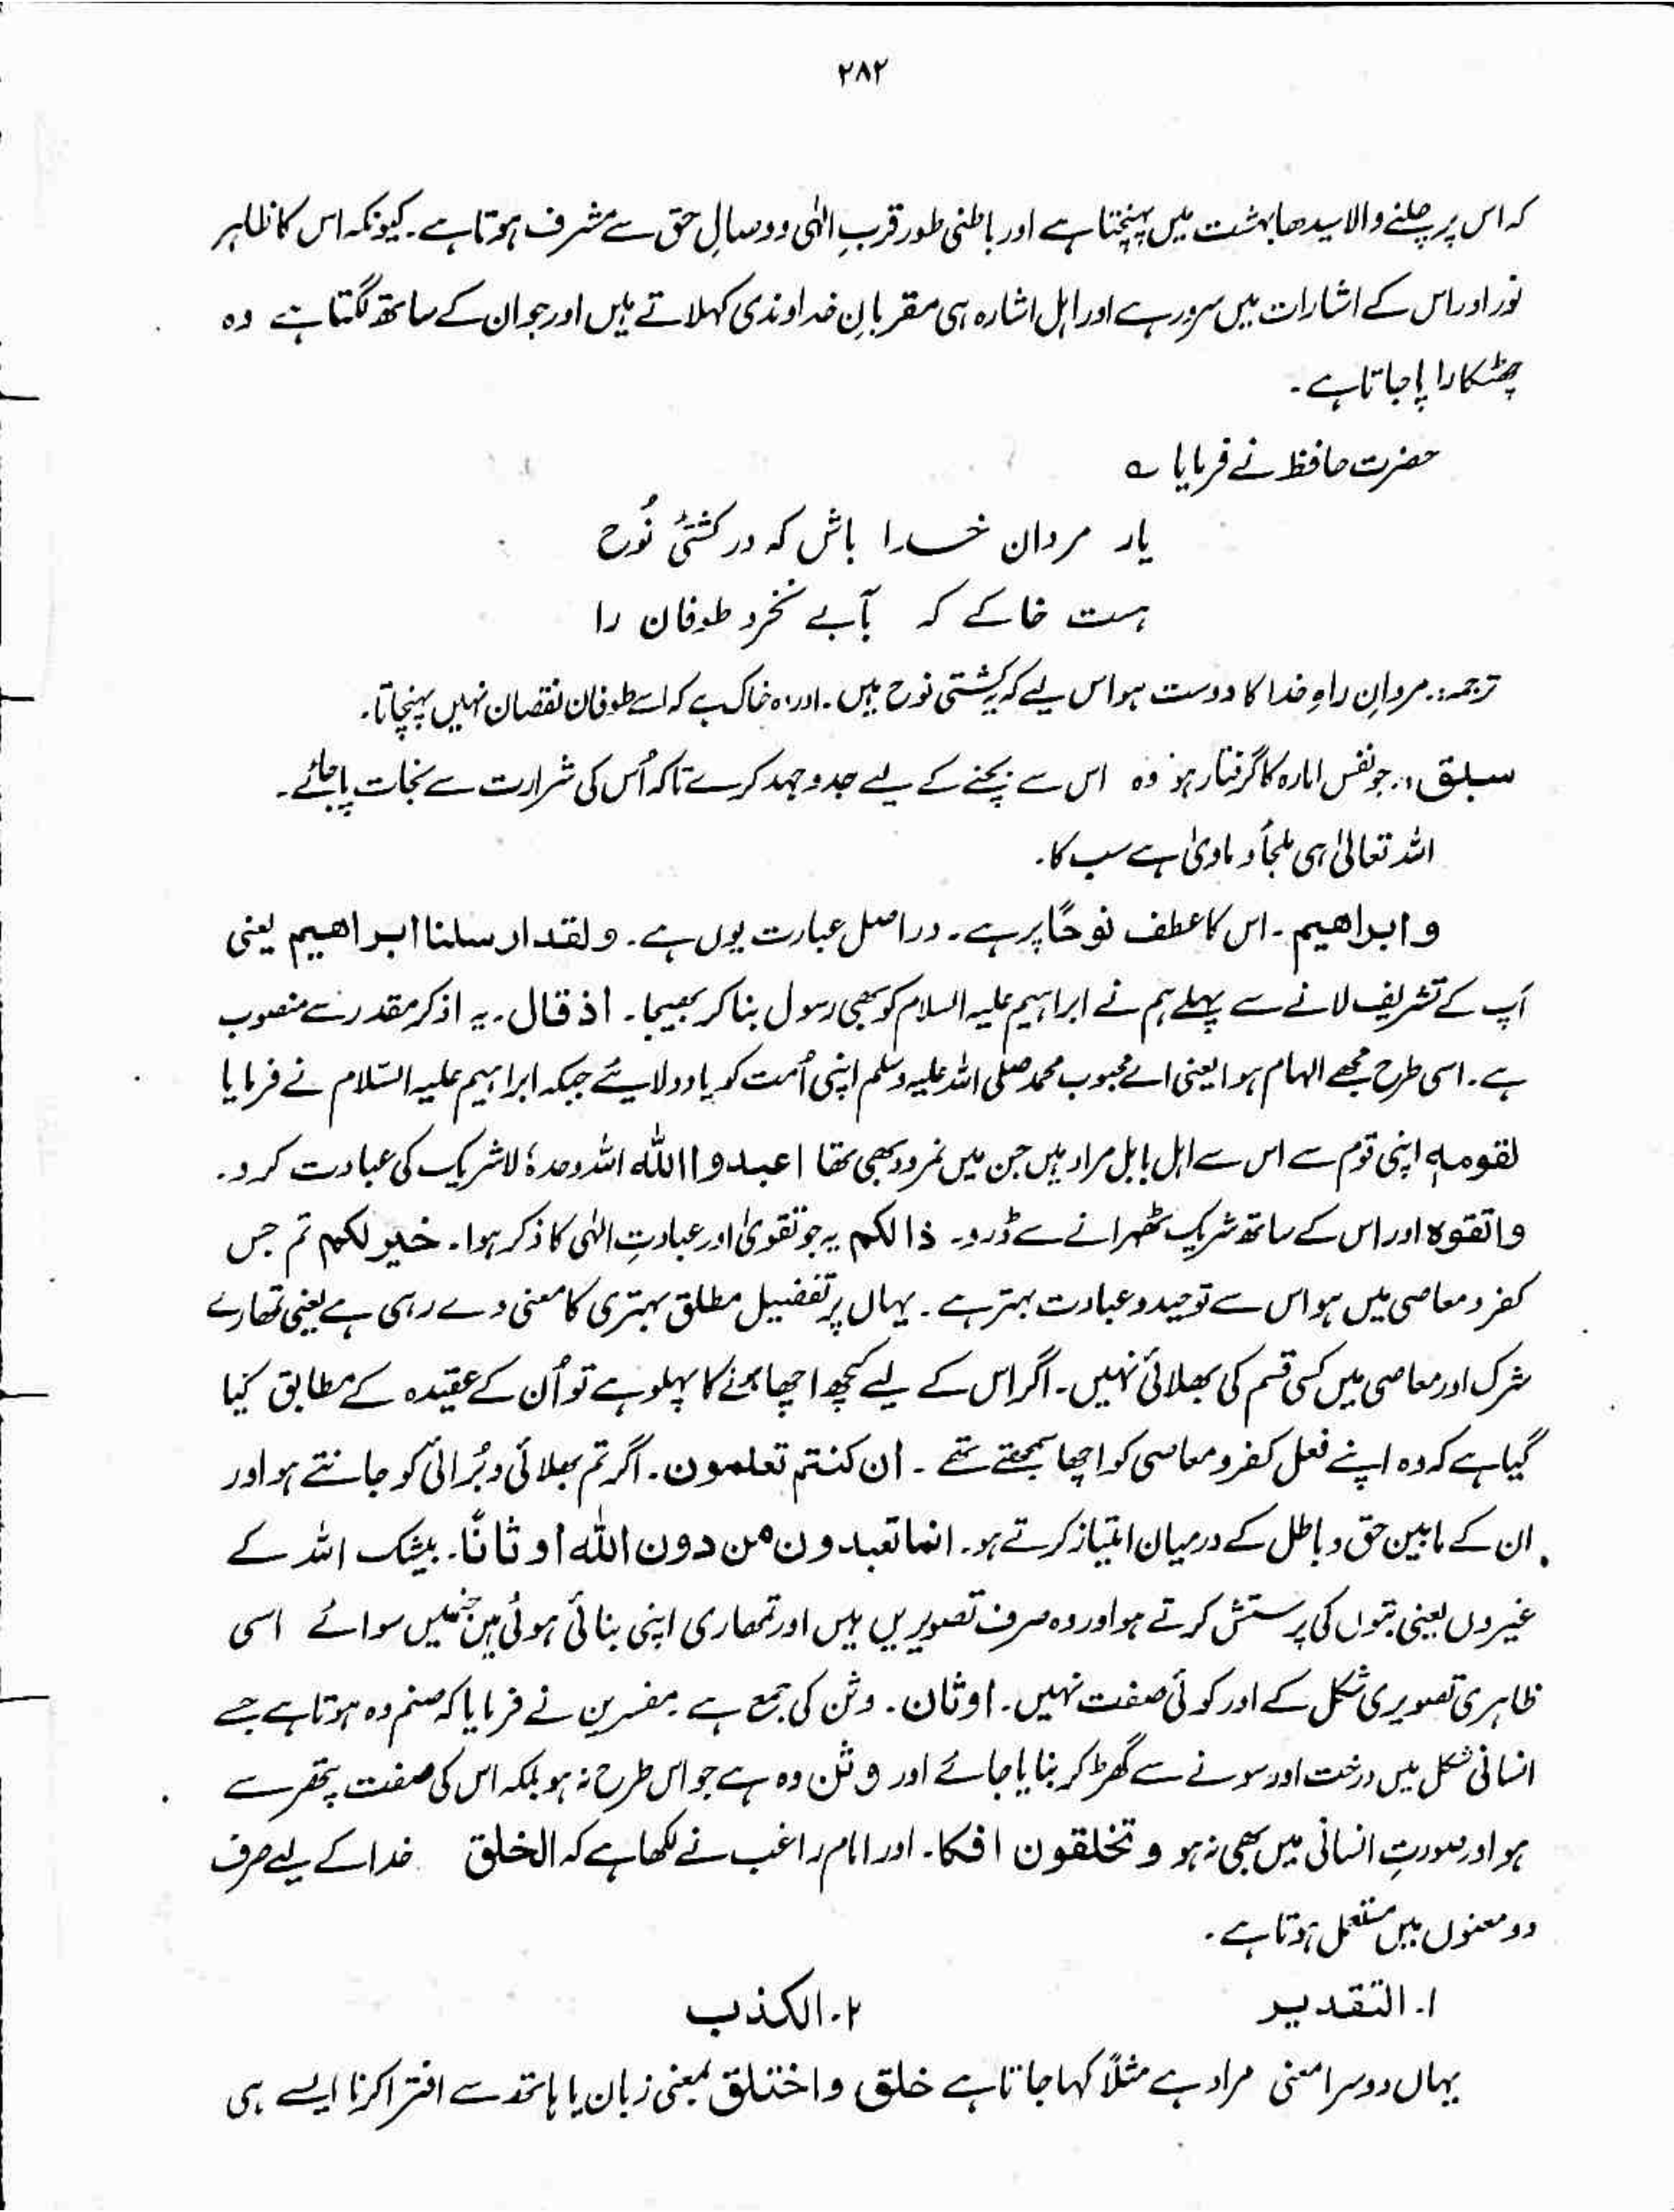 ۲۸۲
کہ اس پر چلنے والا سیدھا بہشت میں پہنچتا ہے اور باطنی طور قربِ الٰہی و وصالِ حق سے مشرف ہوتا ہے۔ کیونکہ اس کا ظاہر
نور اور اس کے اشارات میں سرور ہے اور اہل اشارہ ہی مقربانِ خداوندی کہلاتے ہیں اور جو ان کے ساتھ لگتا ہے وہ
چھٹکارا پا جاتا ہے۔
حضرت حافظ نے فرمایا ؎
یار مردان خدا باش کہ در کشتئ نُوح
ہست خاکے کہ بآبے نخرد طوفان را
ترجمہ:۔ مردانِ راہِ خدا کا دوست ہو اس لیے کہ یہ کشتی نوح ہیں۔ اور وہ خاک ہے کہ اسے طوفان نقصان نہیں پہنچاتا۔
سبلق:۔ جو نفس امارہ کا گرفتار ہو وہ اس سے بچنے کے لیے جدوجہد کرے تاکہ اُس کی شرارت سے نجات پا جائے۔
اللہ تعالیٰ ہی ملجأ و ماویٰ ہے سب کا۔
و ابراھیم۔ اس کا عطف نوحًا پر ہے۔ دراصل عبارت یوں ہے۔ ولقد ارسلنا ابراھیم یعنی
آپ کے تشریف لانے سے پہلے ہم نے ابراہیم علیہ السلام کو بھی رسول بنا کر بھیجا۔ اذ قال۔ یہ اذکر مقدر سے منصوب
ہے۔ اسی طرح مجھے الہام ہوا یعنی اے محبوب محمد صلی اللہ علیہ وسلم اپنی اُمت کو یاد دلائیے جبکہ ابراہیم علیہ السّلام نے فرمایا
لقومہٖ اپنی قوم سے اس سے اہل بابل مراد ہیں جن میں نمرود بھی تھا اعبدوا اللّٰہ اللہ وحدہٗ لا شریک کی عبادت کرو۔
واتقوہ اور اس کے ساتھ شریک ٹھہرانے سے ڈرو۔ ذالکم یہ جو تقویٰ اور عبادتِ الٰہی کا ذکر ہوا۔ خیر لکم تم جس
کفر و معاصی میں ہو اس سے توحید و عبادت بہتر ہے۔ یہاں پر تفضیل مطلق بہتری کا معنی دے رہی ہے یعنی تمھارے
شرک اور معاصی میں کسی قسم کی بھلائی نہیں۔ اگر اس کے لیے کچھ اچھا ہونے کا پہلو ہے تو اُن کے عقیدہ کے مطابق کیا
گیا ہے کہ وہ اپنے فعل کفر و معاصی کو اچھا سمجھتے تھے ۔ ان کنتم تعلمون۔ اگر تم بھلائی و بُرائی کو جانتے ہو اور
ان کے مابین حق و باطل کے درمیان امتیاز کرتے ہو۔ انما تعبدون من دون اللّٰہ اوثانًا۔ بیشک اللہ کے
غیروں یعنی بتوں کی پرستش کرتے ہو اور وہ صرف تصویریں ہیں اور تمھاری اپنی بنائی ہوئی ہیں جنھیں سوائے اسی
ظاہری تصویری شکل کے اور کوئی صفت نہیں۔ اوثان۔ وثن کی جمع ہے۔ مفسرین نے فرمایا کہ صنم وہ ہوتا ہے جسے
انسانی شکل میں درخت اور سونے سے گھڑ کر بنایا جائے اور وثن وہ ہے جو اس طرح نہ ہو بلکہ اس کی صفت پتھر سے
ہو اور صورتِ انسانی میں بھی نہ ہو و تخلقون افکا۔ اور امام راغب نے لکھا ہے کہ الخلق خدا کے لیے صرف
دو معنوں میں مستعمل ہوتا ہے۔
۱۔ التقدیر ۲۔ الکذب
یہاں دوسرا معنی مراد ہے مثلاً کہا جاتا ہے خلق و اختلق بمعنی زبان یا ہاتھ سے افترا کرنا ایسے ہی